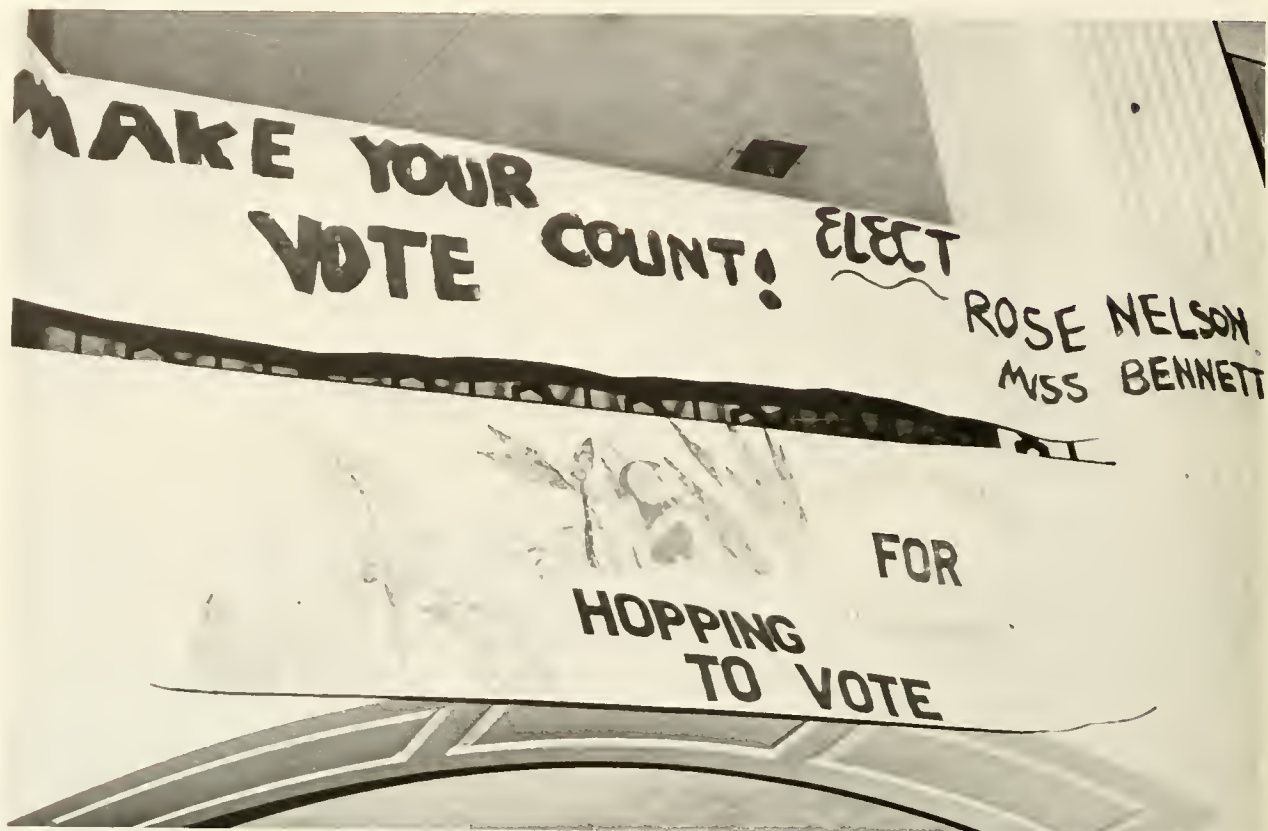 MAKE YOUR
VOTE COUNT!
ELECT
ROSE NELSON
MISS BENNETT
FOR
HOPPING
TO VOTE